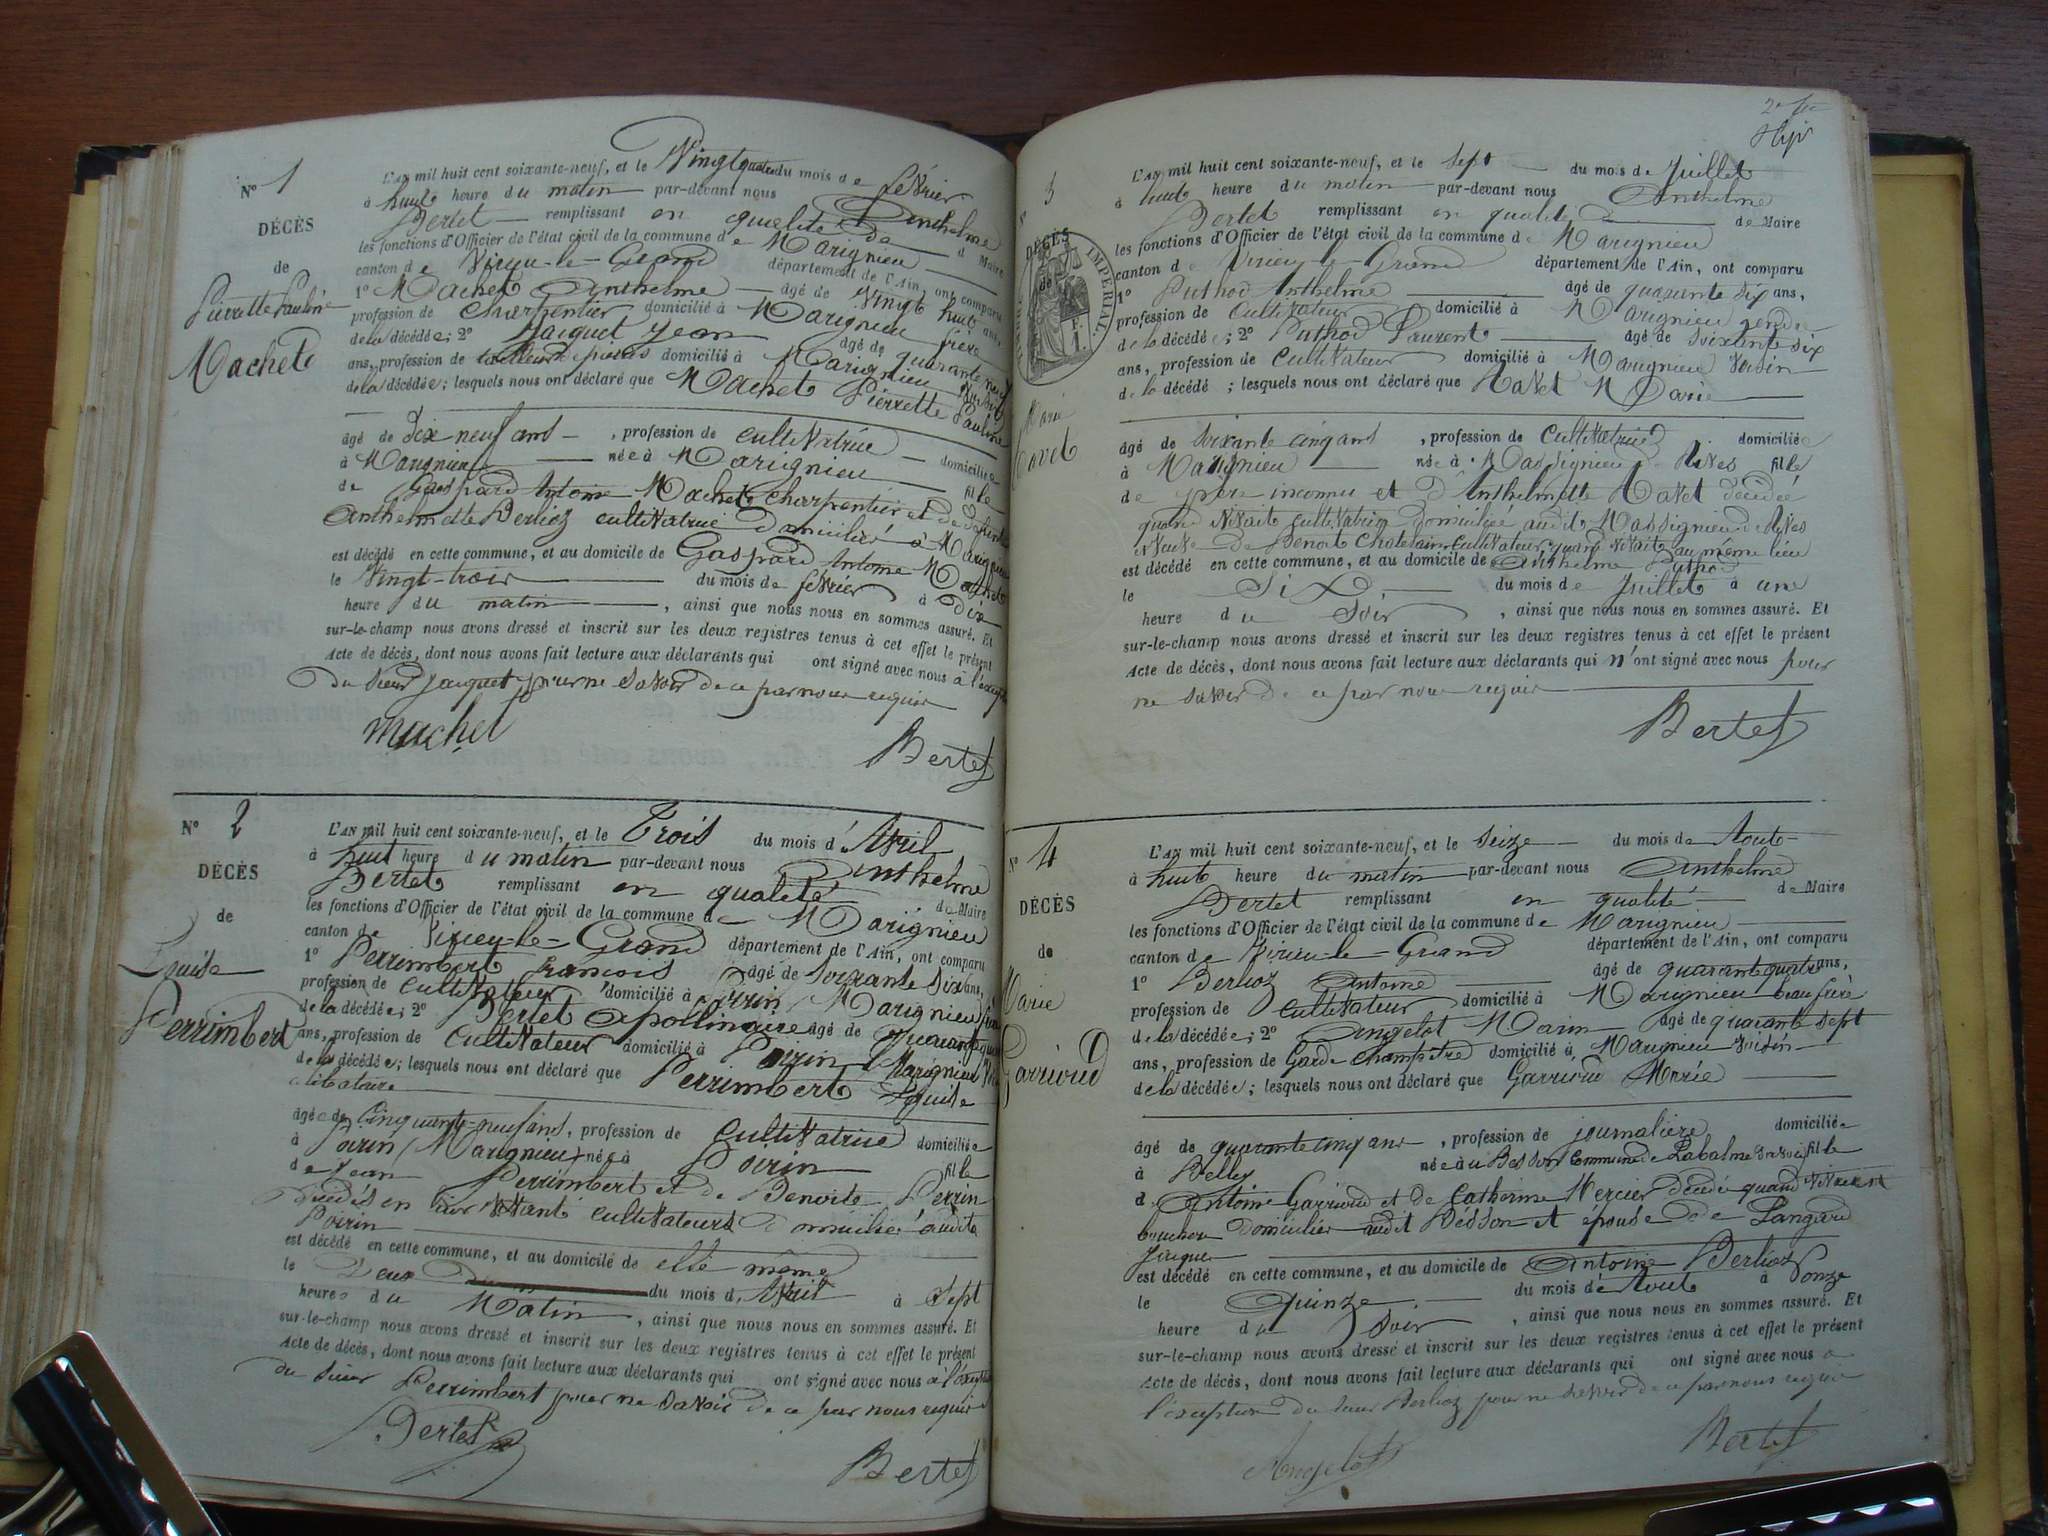 N° 1
DÉCÈS
de
Pierrette Pauline
Machet
L'AN mil huit cent soixante-neuf, et le Vingt quatre du mois de février
à huit heure du matin par-devant nous Anthelme
Bertet remplissant en qualité de de Maire
les fonctions d'Officier de l'état civil de la commune de Marignieu
canton de Virieu-le-Grand département de l'Ain, ont comparu
1° Machet Anthelme âgé de Vingt huit ans,
profession de Charpentier domicilié à Marignieu frère
de la décédée; 2° Jacquet Jean âgé de quarante neuf
ans, profession de domicilié à Marignieu Voisin
de la décédée; lesquels nous ont déclaré que Machet Pierrette Pauline
âgé de Dix neuf ans, profession de cultivatrice domiciliée
à Marignieu née à Marignieu fille
de Gaspard Antoine Machet charpentier et de défunte
Anthelmette Berlioz cultivatrice domiciliés à Marignieu
est décédé en cette commune, et au domicile de Gaspard Antoine Machet
le Vingt-trois du mois de février à Dix
heure du matin, ainsi que nous nous en sommes assuré. Et
sur-le-champ nous avons dressé et inscrit sur les deux registres tenus à cet effet le présent
Acte de décès, dont nous avons fait lecture aux déclarants qui ont signé avec nous à l'exception
du sieur Jacquet pour ne savoir de ce par nous requis
Machet
Bertet
N° 2
DÉCÈS
de
Louise
Perrimbert
L'AN mil huit cent soixante-neuf, et le Trois du mois d'Avril
à huit heure du matin par-devant nous Anthelme
Bertet remplissant en qualité de Maire
les fonctions d'Officier de l'état civil de la commune de Marignieu
canton de Virieu-le-Grand département de l'Ain, ont comparu
1° Perrimbert françois âgé de soixante Dix ans,
profession de cultivateur domicilié à Poirin, Marignieu frère
de la décédée; 2° Bertet Apollinaire âgé de
ans, profession de cultivateur domicilié à Poirin Marignieu
de la décédée; lesquels nous ont déclaré que Perrimbert Louise
célibataire
âgée de Cinquante-neuf ans, profession de cultivatrice domiciliée
à Poirin (Marignieu) née à Poirin fille
de Jean Perrimbert et de Benoite Perrin
Décédés en leur vivant cultivateurs domiciliés audit
Poirin
est décédé en cette commune, et au domicile de elle même
le Deux du mois d'Avril à Sept
heures du Matin, ainsi que nous nous en sommes assuré. Et
sur-le-champ nous avons dressé et inscrit sur les deux registres tenus à cet effet le présent
Acte de décès, dont nous avons fait lecture aux déclarants qui ont signé avec nous à l'exception
du sieur Perrimbert pour ne savoir de ce par nous requis
Bertet
Bertet
N° 3
DÉCÈS
de
TIMBRE IMPÉRIAL
Marie
Navet
L'AN mil huit cent soixante-neuf, et le Sept du mois de Juillet
à huit heure du matin par-devant nous Anthelme
Bertet remplissant en qualité de Maire
les fonctions d'Officier de l'état civil de la commune de Marignieu
canton de Virieu-le-Grand département de l'Ain, ont comparu
1° Puthod Anthelme âgé de quarante six ans,
profession de Cultivateur domicilié à Marignieu gendre
de la décédée; 2° Puthod Laurent âgé de soixante six
ans, profession de cultivateur domicilié à Marignieu Voisin
de la décédé; lesquels nous ont déclaré que Navet Marie
âgé de soixante cinq ans, profession de Cultivatrice domiciliée
à Marignieu née à Massignieu de Rives fille
de père inconnu et d'Anthelmette Navet décédée
quand vivait cultivatrice domiciliée audit Massignieu de Rives
veuve de Benoit Chatelain cultivateur quand vivait au même lieu
est décédé en cette commune, et au domicile de Anthelme Puthod
le Six du mois de Juillet à une
heure du Soir, ainsi que nous nous en sommes assuré. Et
sur-le-champ nous avons dressé et inscrit sur les deux registres tenus à cet effet le présent
Acte de décès, dont nous avons fait lecture aux déclarants qui n'ont signé avec nous pour
ne savoir de ce par nous requis
Bertet
N° 4
DÉCÈS
de
Marie
Garrioud
L'AN mil huit cent soixante-neuf, et le Seize du mois de Aout
à huit heure du matin par-devant nous Anthelme
Bertet remplissant en qualité de Maire
les fonctions d'Officier de l'état civil de la commune de Marignieu
canton de Virieu-le-Grand département de l'Ain, ont comparu
1° Berlioz Antoine âgé de quarante quatre ans,
profession de cultivateur domicilié à Marignieu beau frère
de la décédée; 2° Angelot Marin âgé de quarante sept
ans, profession de Garde Champêtre domicilié à Marignieu Voisin
de la décédée; lesquels nous ont déclaré que Garrioud Marie
âgé de quarante cinq ans, profession de journalière domiciliée
à Belley née à Commune de Labalme fille
d'Antoine Garrioud et de Catherine Mercier décédés quand vivaient
domiciliés audit et épouse de Langard
Jacques
est décédé en cette commune, et au domicile de Antoine Berlioz
le Quinze du mois d'Aout à onze
heure du Soir, ainsi que nous nous en sommes assuré. Et
sur-le-champ nous avons dressé et inscrit sur les deux registres tenus à cet effet le présent
Acte de décès, dont nous avons fait lecture aux déclarants qui ont signé avec nous à
l'exception du sieur Berlioz pour ne savoir de ce par nous requis
Angelot
Bertet